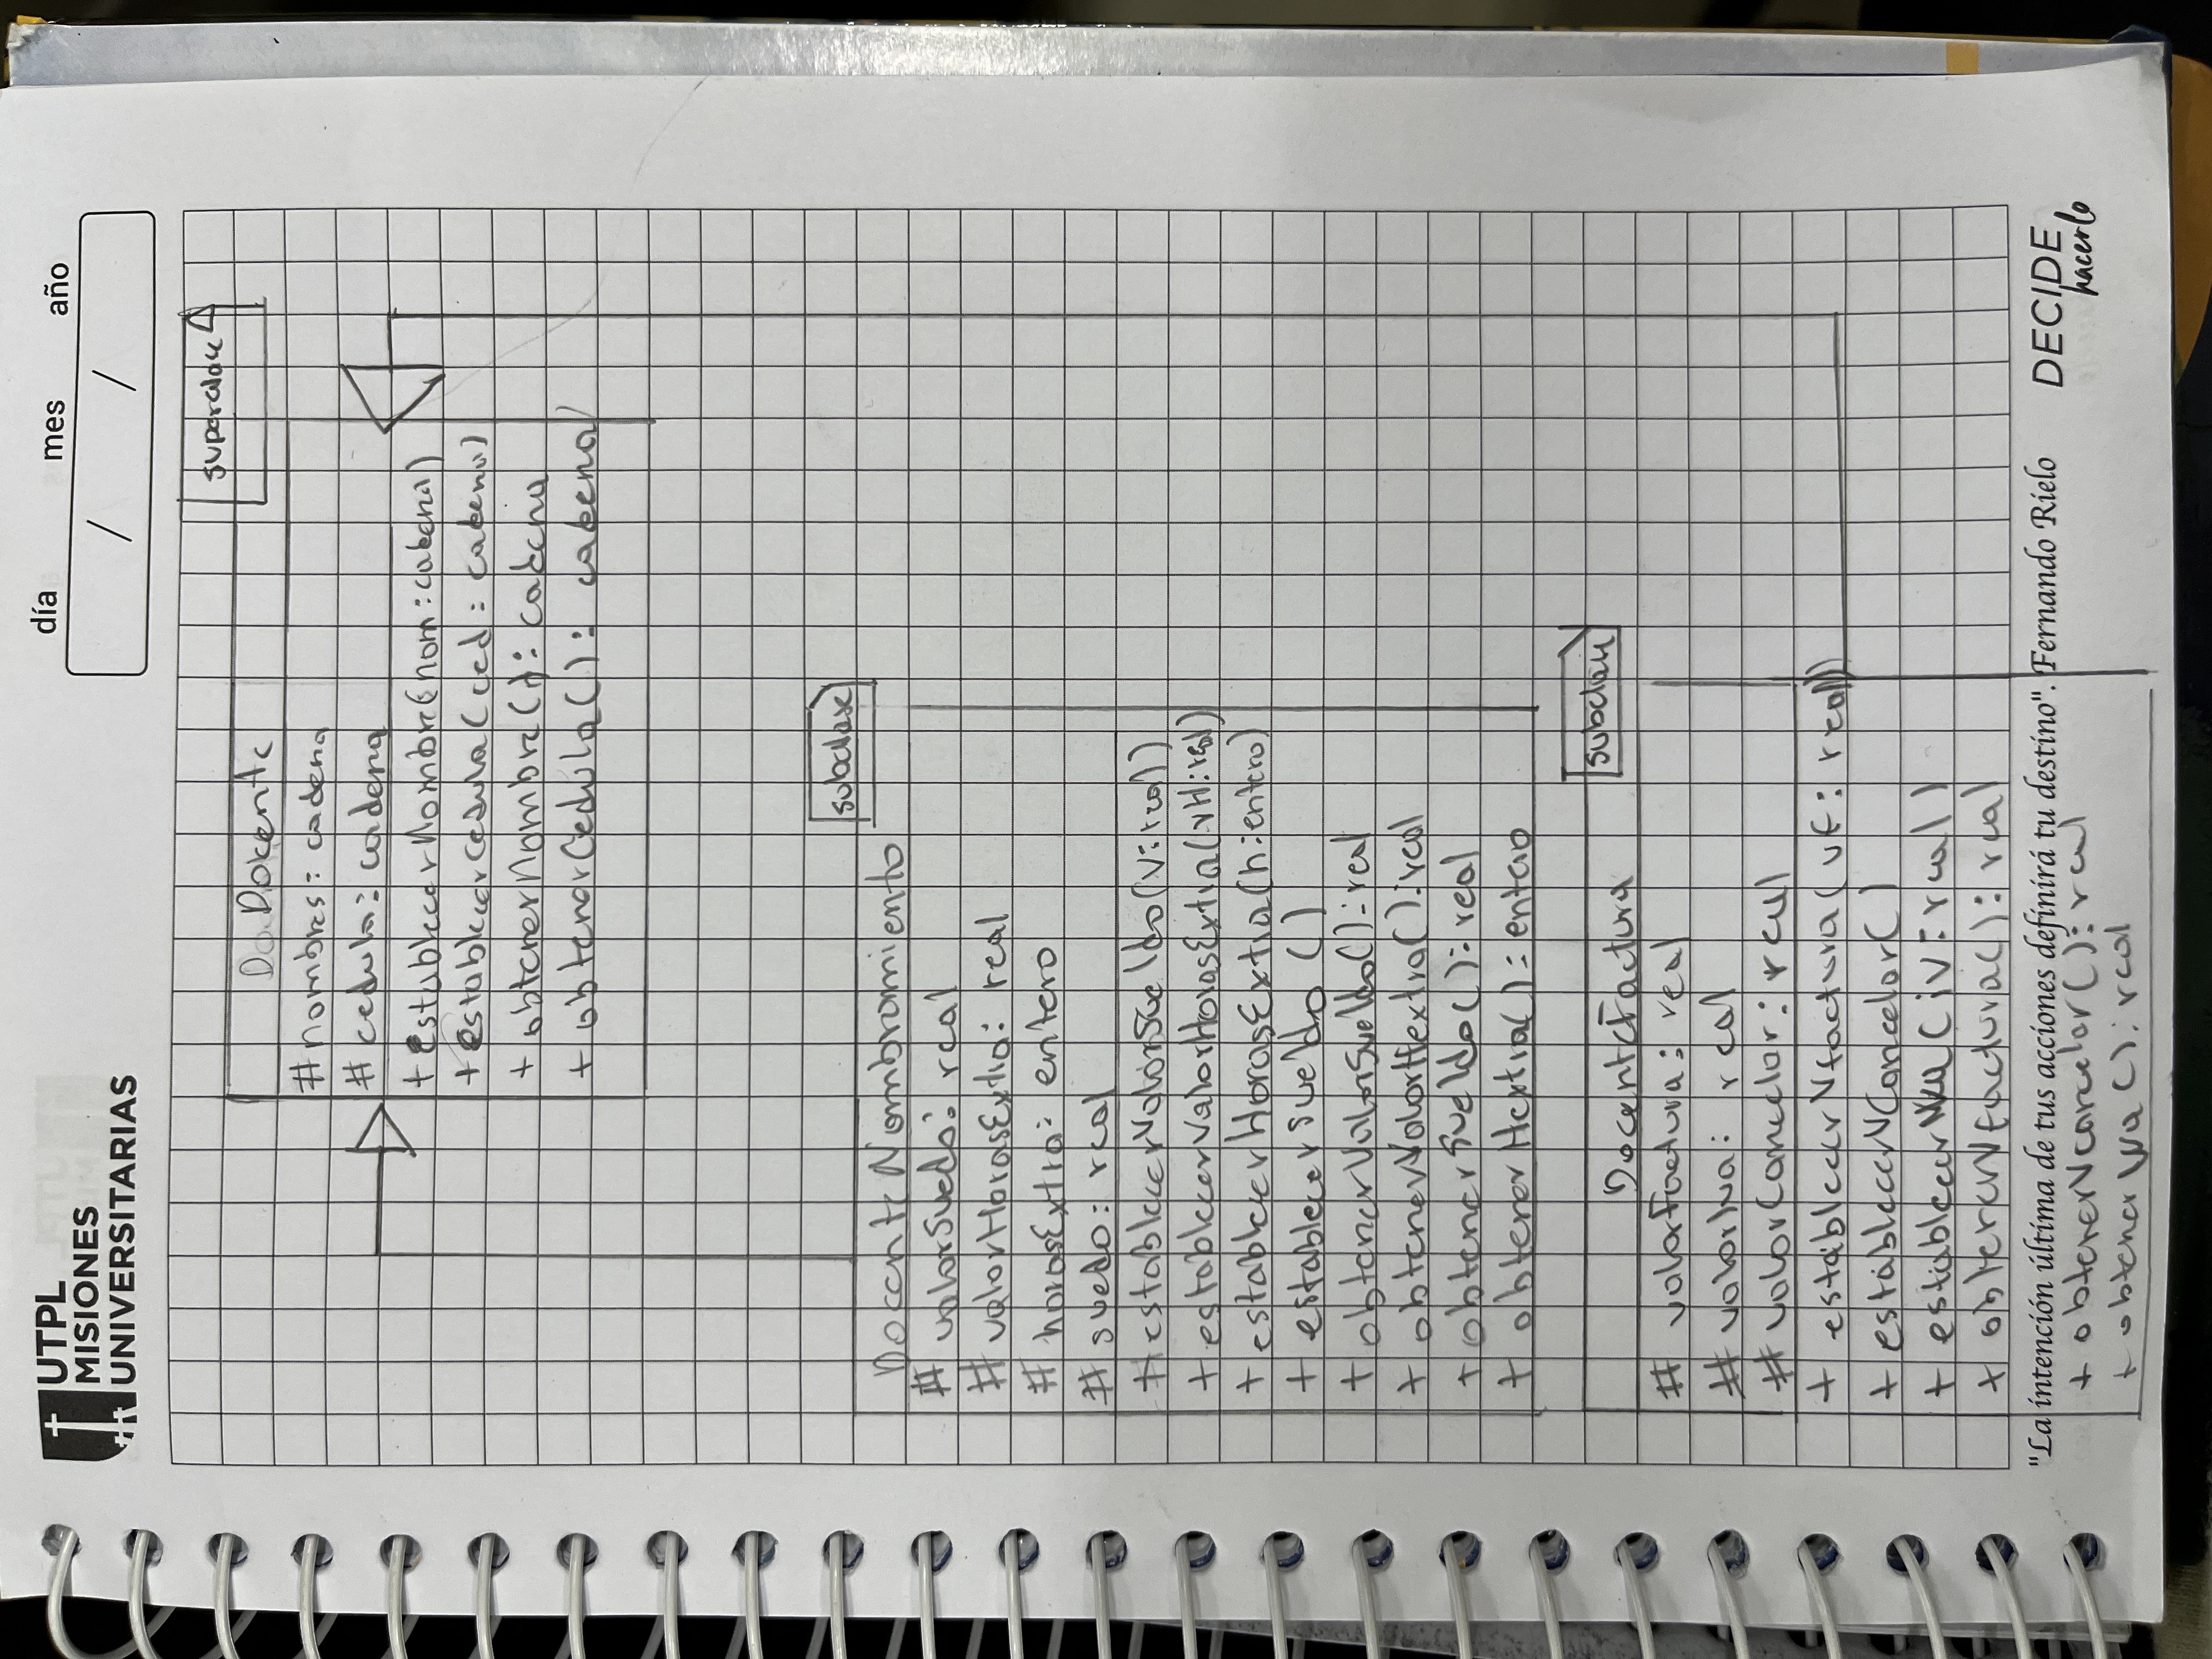 UTPL
MISIONES
UNIVERSITARIAS
día mes año
/ /
superclase
Docente
#nombres: cadena
# cedula: cadena
+ establecerNombre(nom: cadena)
+ establecerCedula(ced: cadena)
+ obtenerNombre(): cadena
+ obtenerCedula(): cadena
subclase
DocenteNombramiento
# valorSuedo: real
# valorHorasExtra: real
# horasExtra: entero
# suedo: real
#establecerValorSueldo(v: real)
+ establecerValorHorasExtra(vH: real)
+ establecerHorasExtra(h: entero)
+ establecerSueldo ()
+ obtenerValorSueldo(): real
+ obtenerValorHextra(): real
+ obtenerSueldo(): real
+ obtenerHextra(): entero
subclase
DocenteFactura
# valorFactura: real
# valorIva: real
# valorCancelar: real
+ establecerVfactura(vf: real)
+ establecerVCancelar()
+ establecerIva(iv: real)
+ obtenerVfactura(): real
"La intención última de tus acciones definirá tu destino". Fernando Rielo
DECIDE
hacerlo
+ obtenerVcancelar(): real
+ obtenerIva(): real